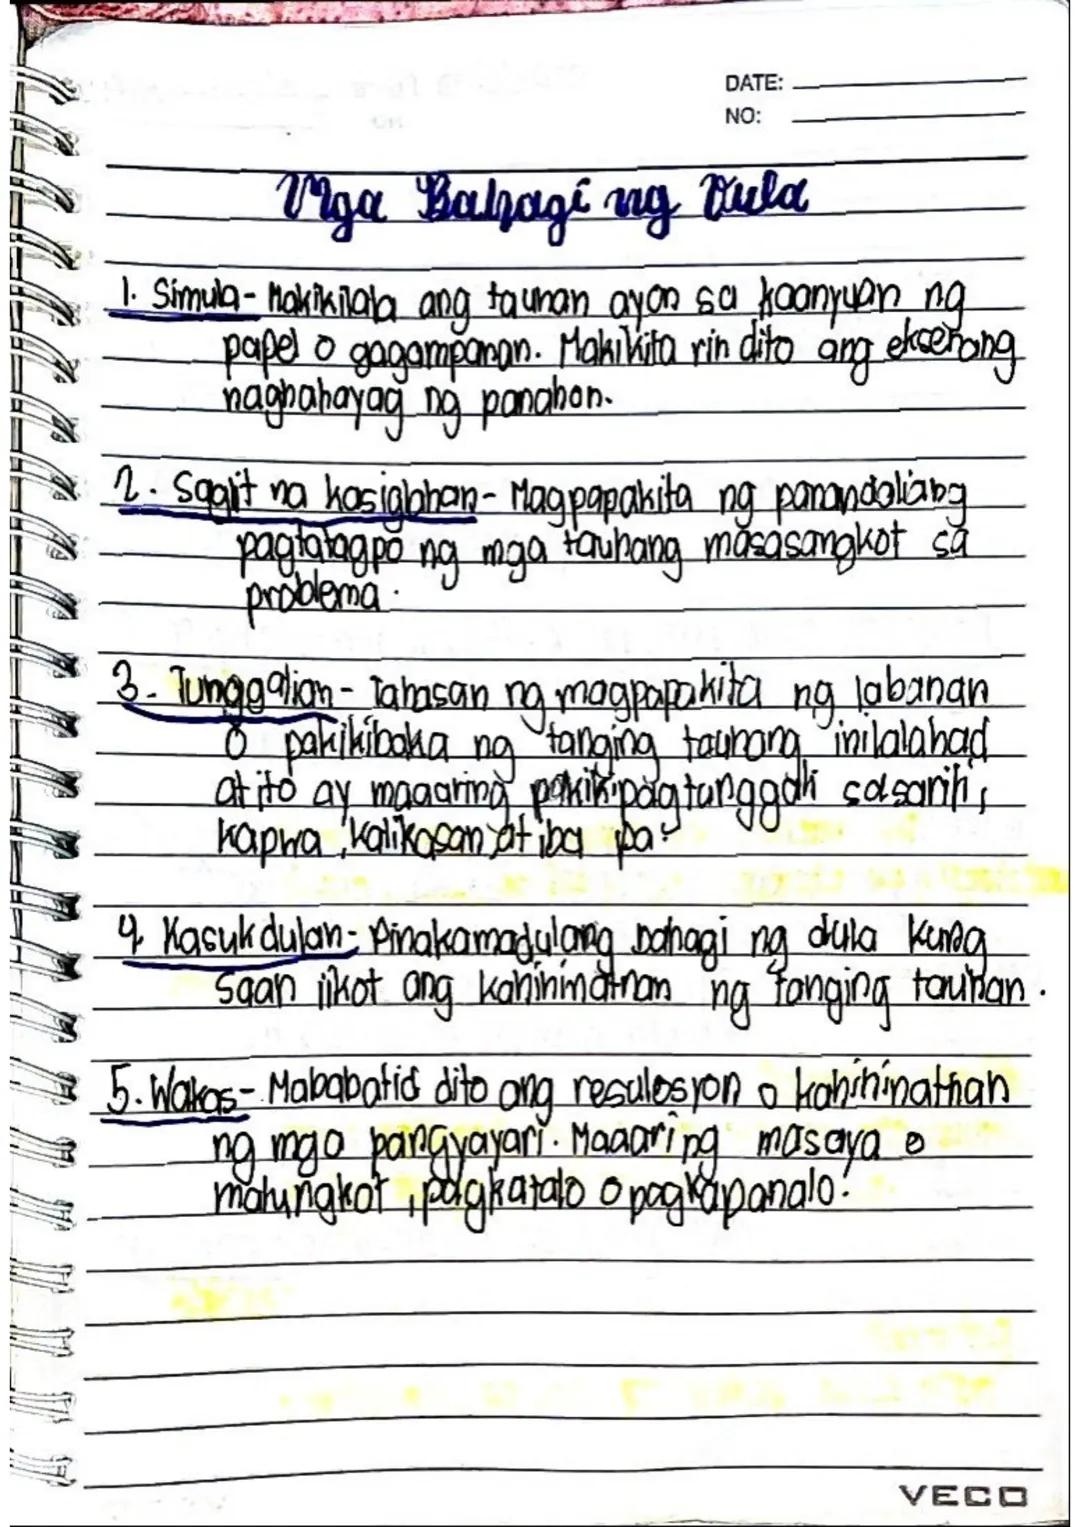 DATE:
NO:
Mga Bahagi ng Dula
1. Simula- Makikilala ang tauhan ayon sa kaanyuan ng
papel o gagampanan. Makikita rin dito ang eksenang
naghahayag ng panahon.
2. Saglit na kasiglahan- Magpapakita ng panandaliang
pagtatagpo ng mga tauhang masasangkot sa
problema.
3. Tunggalian- Tahasan ng magpapakita ng labanan
o pakikibaka ng tanging tauhang inilalahad
at ito ay maaaring pakikipagtunggali sa sarili,
kapwa, kalikasan, at iba pa.
4. Kasukdulan- Pinakamadulang bahagi ng dula kung
saan iikot ang kahihinatnan ng tanging tauhan.
5. Wakas- Mababatid dito ang resulosyon o kahihinatnan
ng mga pangyayari. Maaaring masaya o
malungkot, pagkatalo o pagkapanalo.
VECO